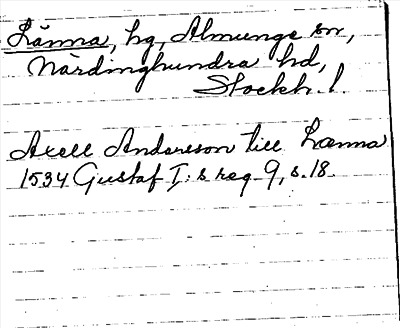 Länna, hg, Almunge sn,
Närdinghundra hd,
Stockh. l.
Axell Andersson till Lænna
1534 Gustaf I:s reg. 9, s. 18.